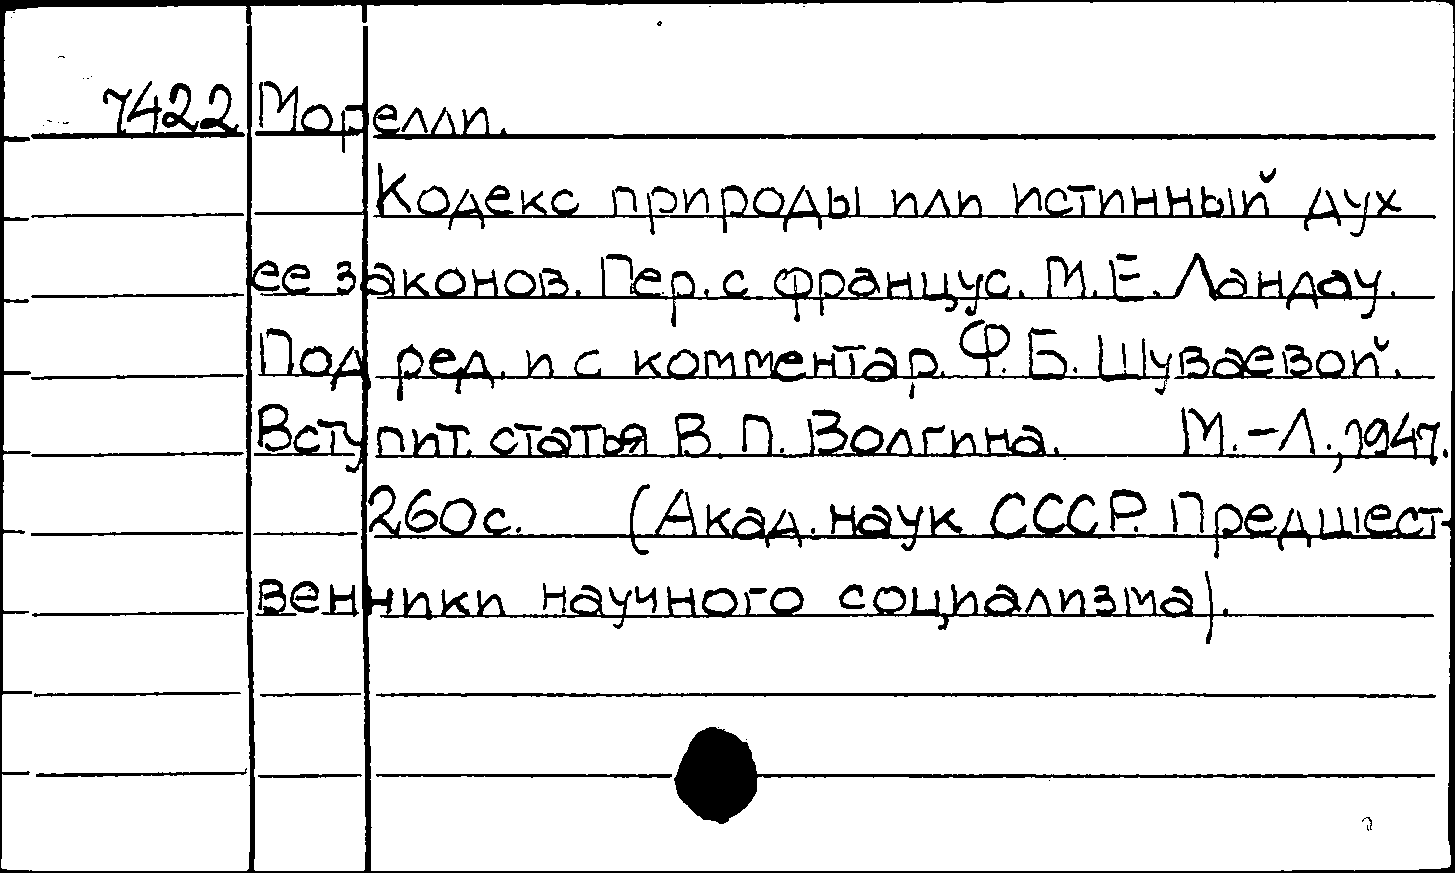 7422 Морелли.
Кодекс природы или истинный дух
ее законов. Пер. с францус. М.Е. Ландау.
Под ред. и с комментар. Ф.Б. Шуваевой.
Вступит. статья В.П. Волгина. М.-Л., 1947.
260с. (Акад. наук СССР. Предшест-
венники научного социализма).